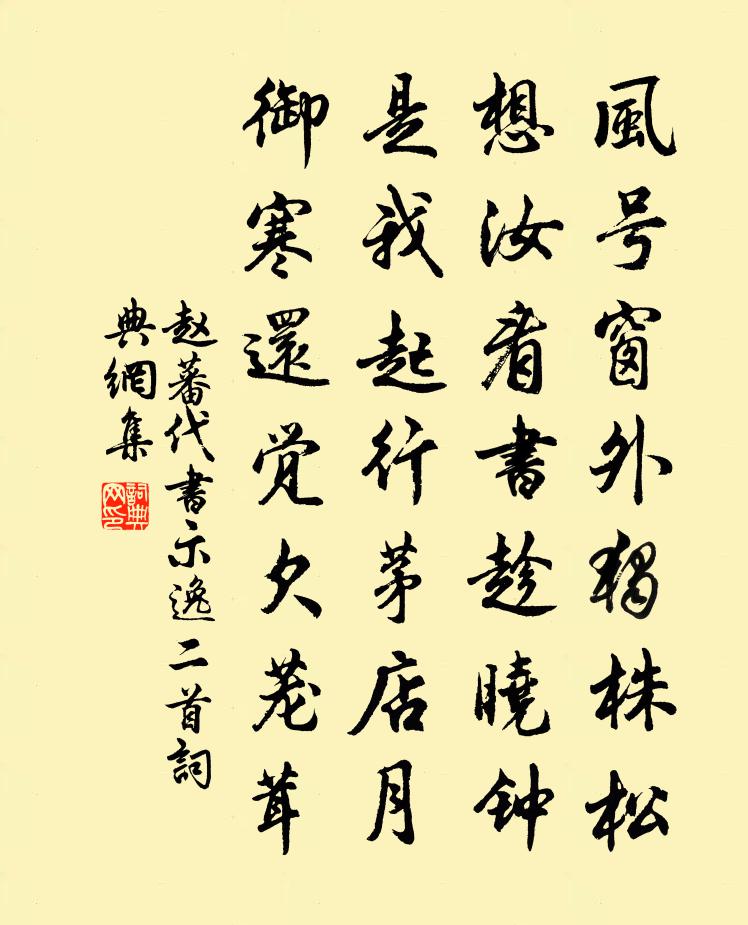 風号窗外独株松
想汝看書趁曉钟
是我起行茅店月
御寒還觉欠茏茸
赵蕃代書示逸二首詞
典網集
詞典网印